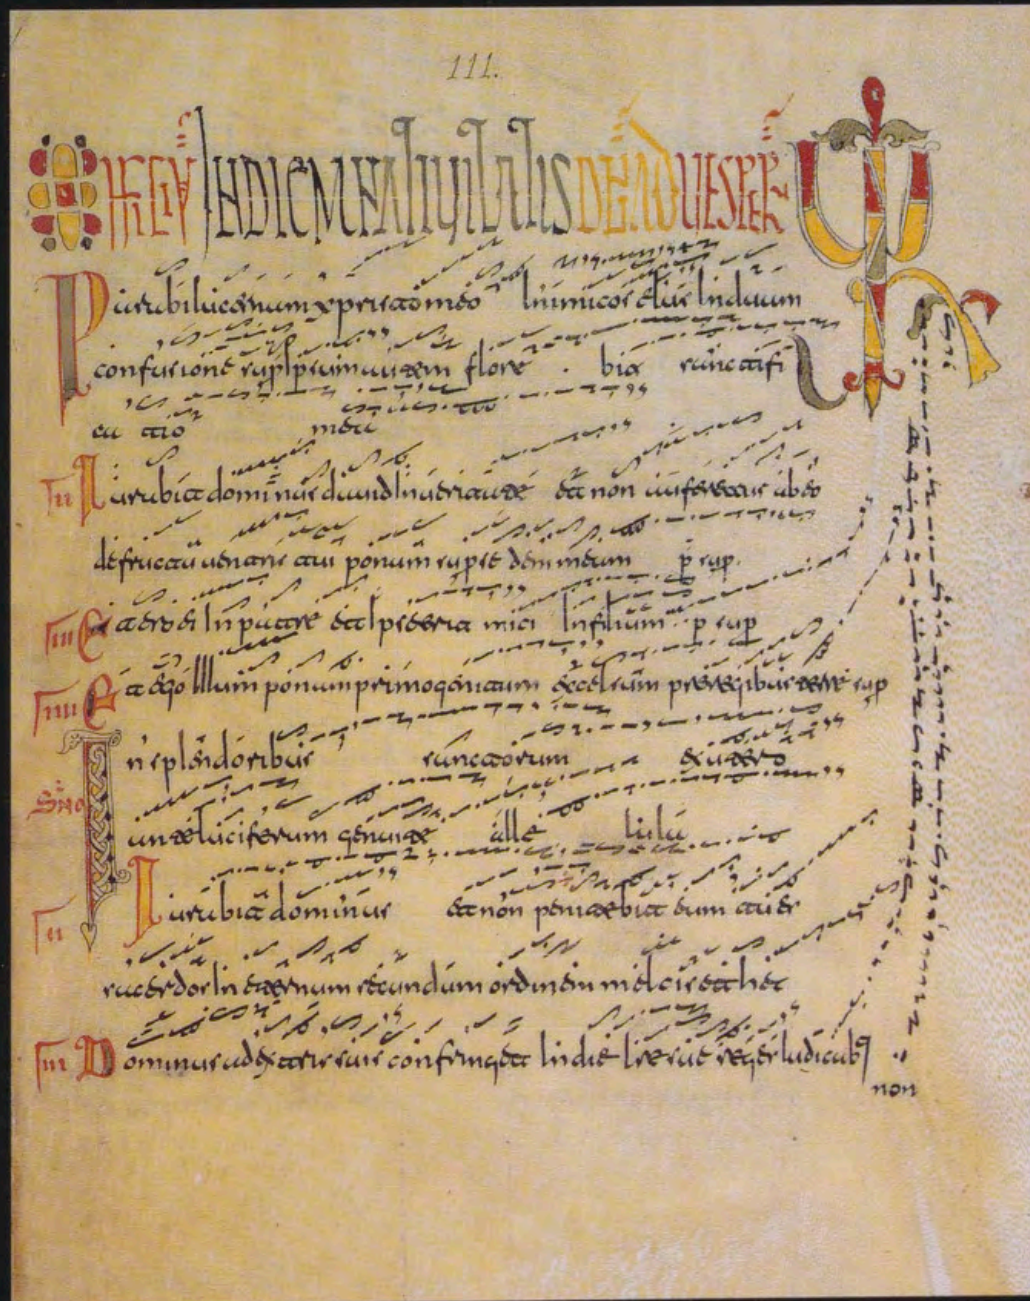 111.
OFFICIUM IN DIEM NATIVITATIS DNI AD VESPRM
Parabi lucernam xpristo meo Inimicos eius Induam
confusione super Ipsum autem flore . bit sanctifi
ca tio mea
II Iurabit dominus dauid In ueritate et non ab eo
de fructu uentris tui ponam super sedem meam p sup
III Et ero ei In patre et Ipse erit mici In filium p sup
IIII Et ego Illum ponam primogenitum excelsum pre regibus terre sup
In splendoribus sanctorum ex utero
ante luciferum genui te alle luia
II Iurabit dominus et non penitebit eum tu es
sacerdos In eternum secundum ordinem melcisethec
III Dominus ad extris tuis confringet In die Ire sue reges Iudicab
non